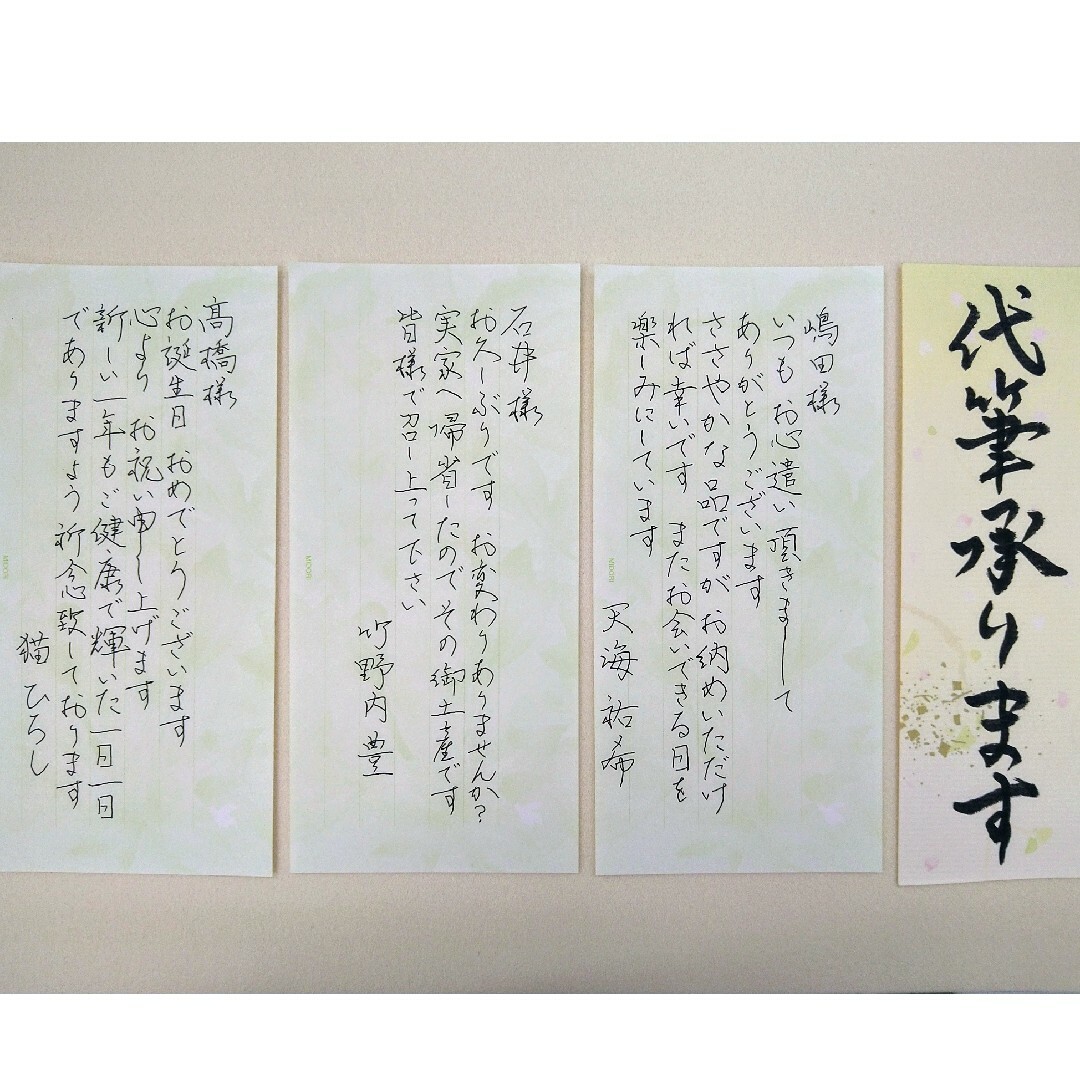 代筆承ります
嶋田様
いつもお心遣い頂きまして
ありがとうございます
ささやかな品ですがお納めいただけ
れば幸いです またお会いできる日を
楽しみにしています
天海祐希
MIDORI
石井様
お久しぶりです お変わりありませんか?
実家へ帰省したのでその御土産です
皆様で召し上って下さい
竹野内豊
MIDORI
髙橋様
お誕生日 おめでとうございます
心より お祝い申し上げます
新しい一年もご健康で輝いた一日一日
でありますよう祈念致しております
猫ひろし
MIDORI